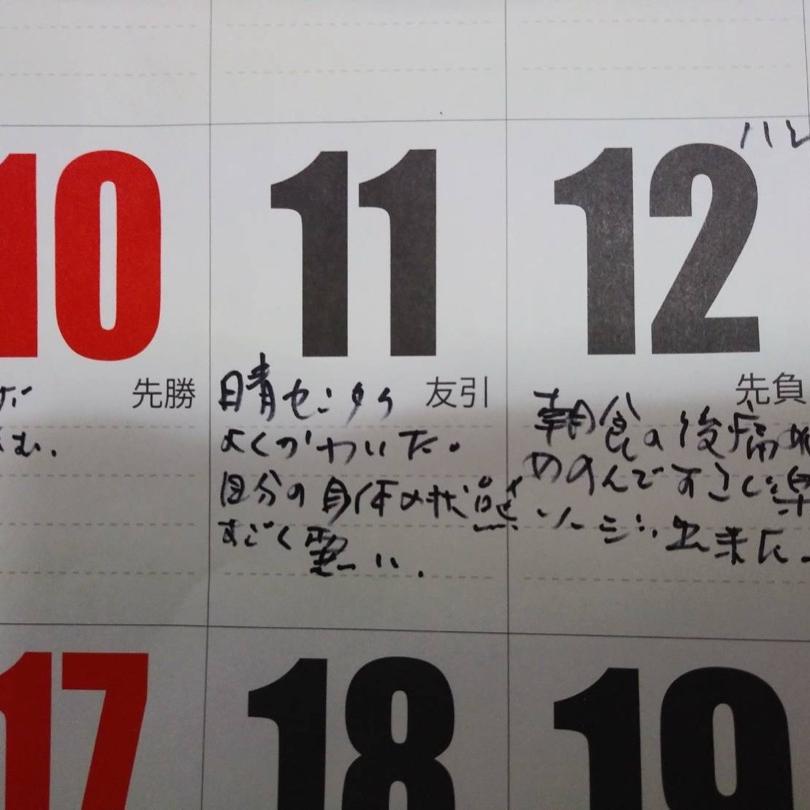 ハレ
10
11
12
先勝
友引
先負
む.
日晴センタク
よくかわいた。
自分の身体の状態
すごく悪い.
朝食の後痛
めのんですこし楽
ソージ出来た
17
18
19